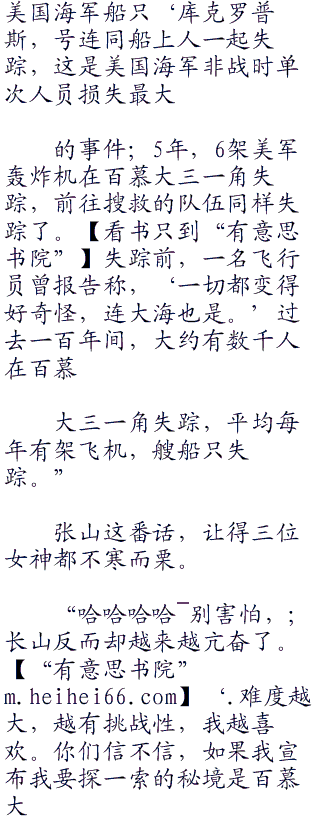 美国海军船只‘库克罗普
斯，号连同船上人一起失
踪，这是美国海军非战时单
次人员损失最大
的事件；5年，6架美军
轰炸机在百慕大三一角失
踪，前往搜救的队伍同样失
踪了。【看书只到“有意思
书院”】失踪前，一名飞行
员曾报告称，‘一切都变得
好奇怪，连大海也是。’过
去一百年间，大约有数千人
在百慕
大三一角失踪，平均每
年有架飞机，艘船只失
踪。”
张山这番话，让得三位
女神都不寒而栗。
“哈哈哈哈¯别害怕，；
长山反而却越来越亢奋了。
【“有意思书院”
m.heihei66.com】‘.难度越
大，越有挑战性，我越喜
欢。你们信不信，如果我宣
布我要探一索的秘境是百慕
大